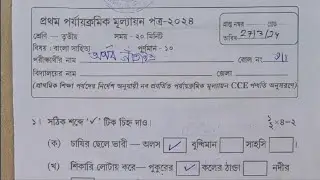 প্রথম পর্যায়ক্রমিক মূল্যায়ন পত্র-২০২৪
প্রশ্ন নম্বর — গ্রেড
শ্রেণী — তৃতীয় সময় -২০ মিনিট তারিখ 27/3/24
বিষয় : বাংলা সাহিত্য পূর্ণমান - ১০
পরীক্ষার্থীর নাম রোল নং
বিদ্যালয়ের নাম জেলা
(প্রাথমিক শিক্ষা পর্ষদের নির্দেশ অনুযায়ী নব প্রবর্তিত পর্যায়ক্রমিক মূল্যায়ন CCE পদ্ধতি অনুসরণে)
১। সঠিক শব্দে '✓' টিক চিহ্ন দাও। ½×4=2
(ক) চাষির ছেলে ভারী — অলস ✓ বুদ্ধিমান সাহসি
(খ) শিকারি লোটায় করে — পুকুরের ✓ কলের ঠান্ডা নদীর